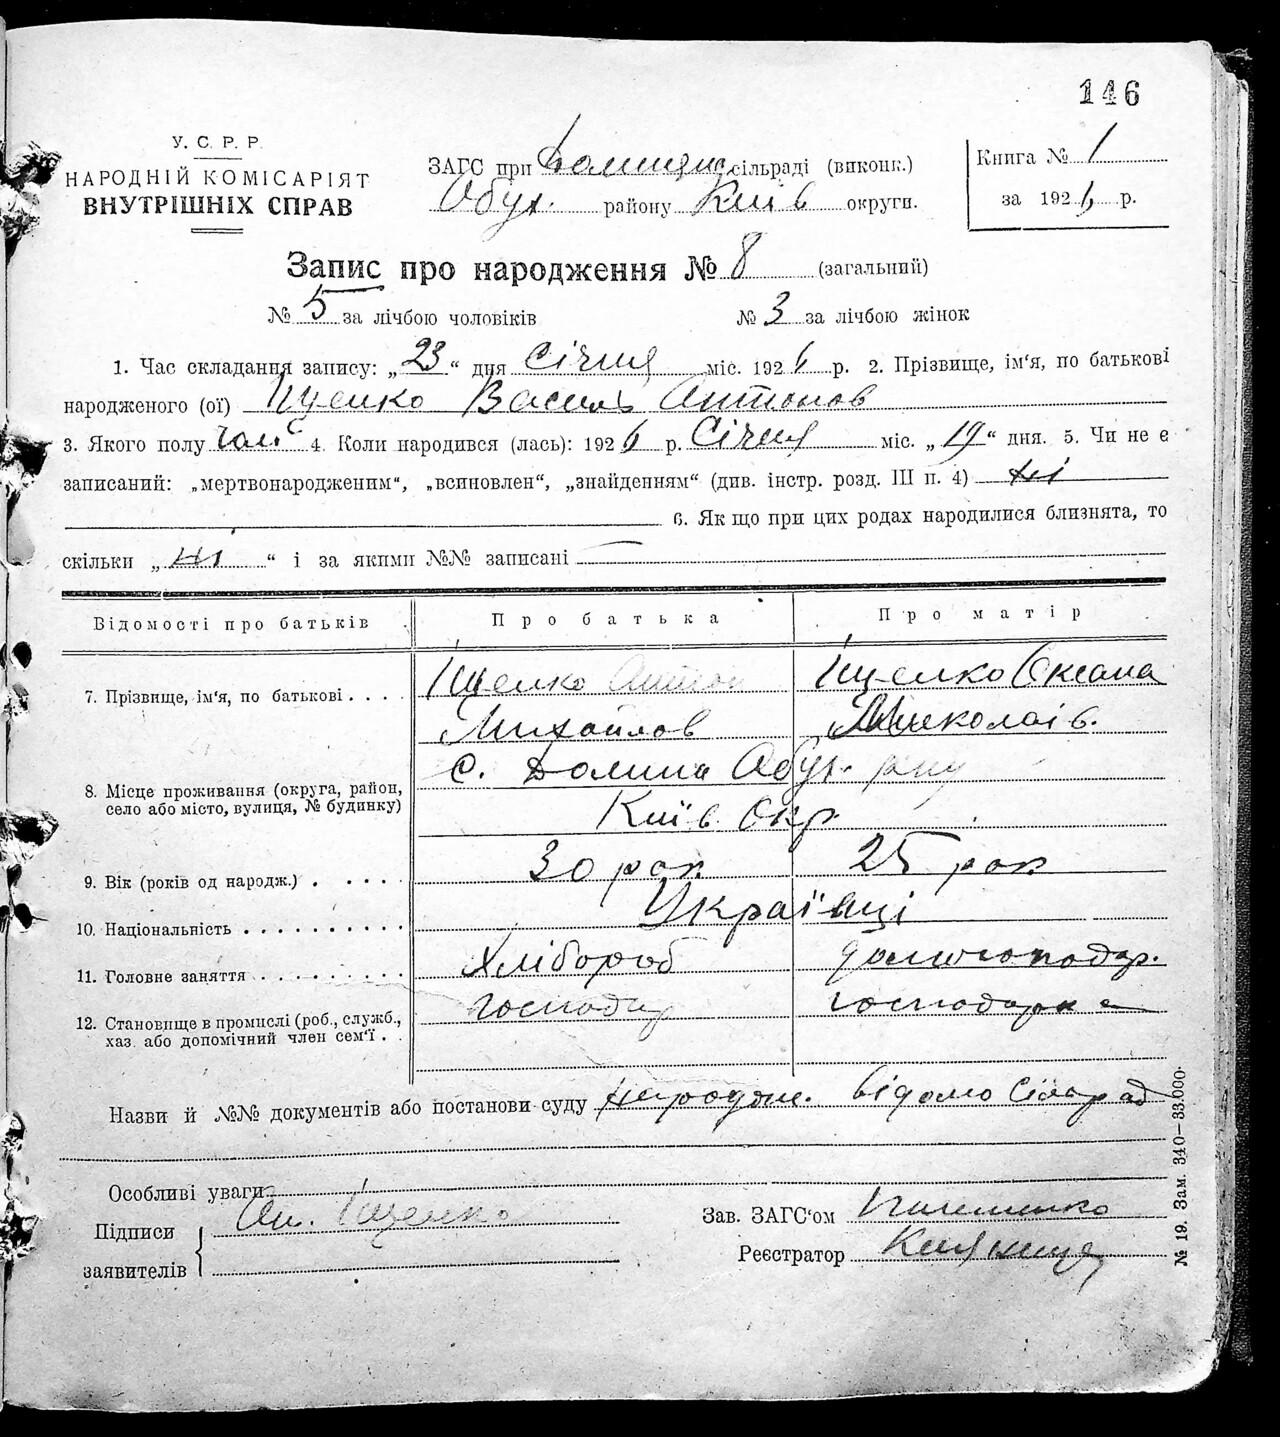 146
У. С. Р. Р.
НАРОДНІЙ КОМІСАРІЯТ
ВНУТРІШНІХ СПРАВ
ЗАГС при Долинян сільраді (виконк.)
Обух. району Київ округи.
Книга № 1
за 1926 р.
Запис про народження № 8 (загальний)
№ 5 за лічбою чоловіків № 3 за лічбою жінок
1. Час складання запису: „23“ дня Січня міс. 1926 р. 2. Прізвище, ім‘я, по батькові
народженого (ої) Іщенко Василь Антонов
3. Якого полу чол 4. Коли народився (лась): 1926 р. Січня міс. „19“ дня. 5. Чи не є
записаний: „мертвонародженим“, „всиновлен“, „знайденням“ (див. інстр. розд. III п. 4) ні
6. Як що при цих родах народилися близнята, то
скільки „ні“ і за якими №№ записані —
Відомості про батьків Про батька Про матір
7. Прізвище, ім‘я, по батькові . . . . Іщенко Антон Іщенко Оксана
Михайлов Миколаїв.
8. Місце проживання (округа, район, село або місто, вулиця, № будинку) с. Долина Обух. р-ну
Київ. Окр.
9. Вік (років од народж.) . . . . . 30 рок 25 рок
10. Національність . . . . . . . . . . Українці
11. Головне заняття . . . . . . . . . . Хлібороб домогосподар.
12. Становище в промислі (роб., служб., хаз. або допомічний член сем‘ї . . господар господарка
Назви й №№ документів або постанови суду народж. відомо Сільрад
Особливі уваги
Підписи заявителів Ан. Іщенко
Зав. ЗАГС‘ом
Реєстратор
№ 19. Зам. 340—33.000.